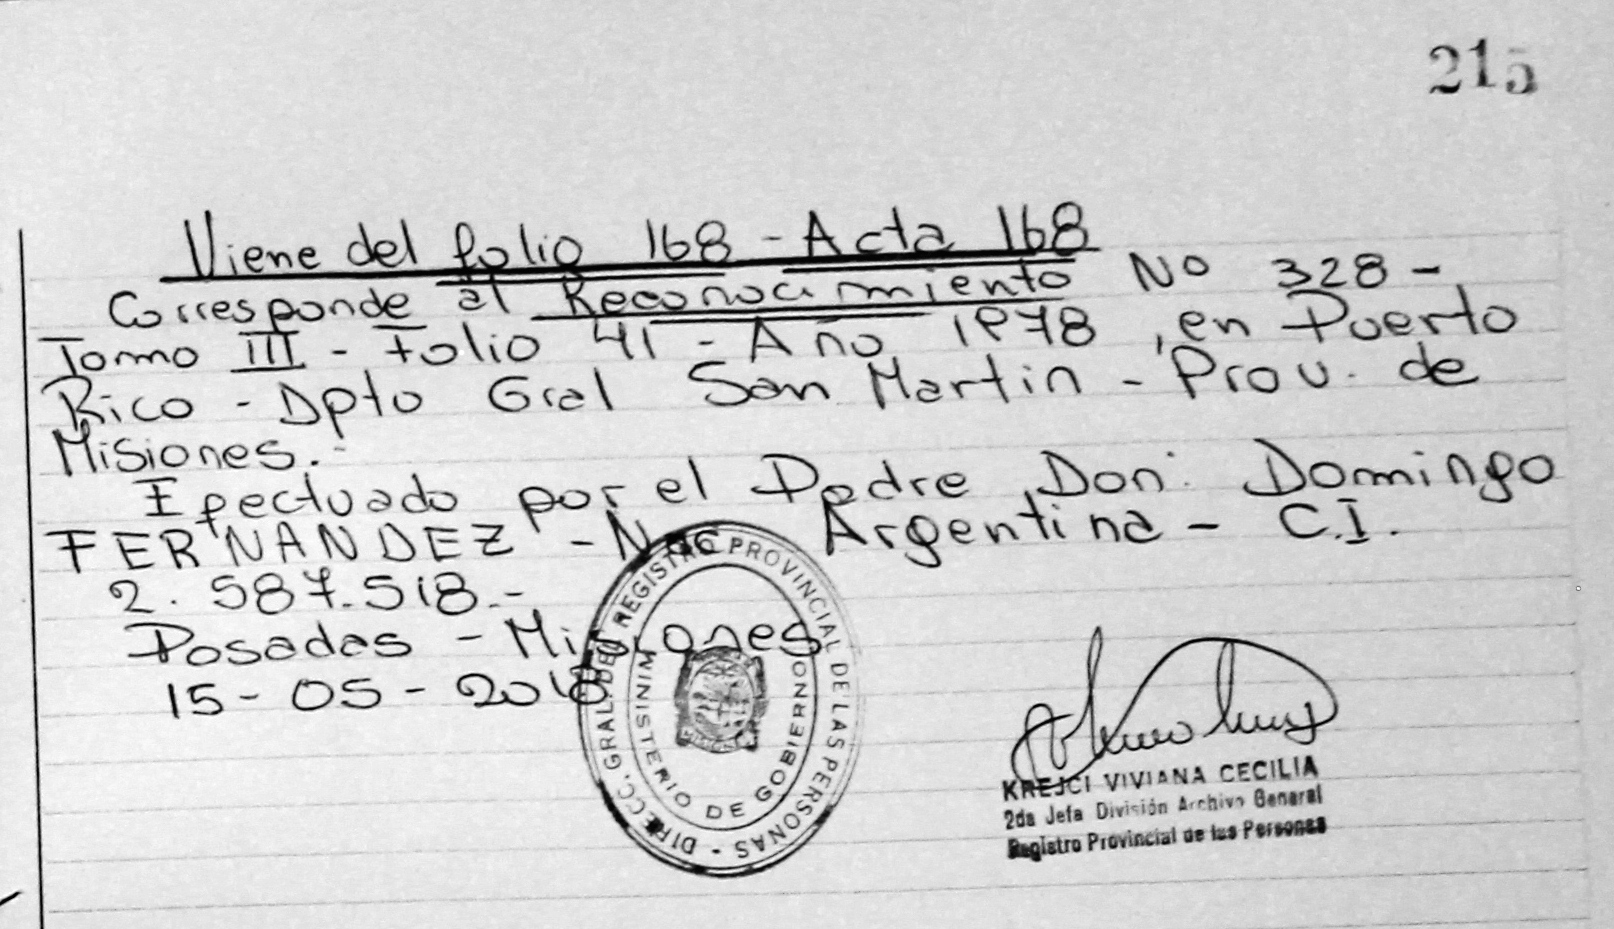 215
Viene del folio 168 - Acta 168
Corresponde al Reconocimiento Nº 328 -
Tomo III - Folio 41 - Año 1978, en Puerto
Rico - Dpto Gral San Martin - Prov. de
Misiones.-
Efectuado por el Padre, Don: Domingo
FERNANDEZ - Nac Argentina - C.I.
2.587.518.-
Posadas - Misiones
15-05-2018
DIRECC. GRAL. DEL REGISTRO PROVINCIAL DE LAS PERSONAS -
MINISTERIO DE GOBIERNO
MISIONES
KREJCI VIVIANA CECILIA
2da Jefa División Archivo General
Registro Provincial de las Personas